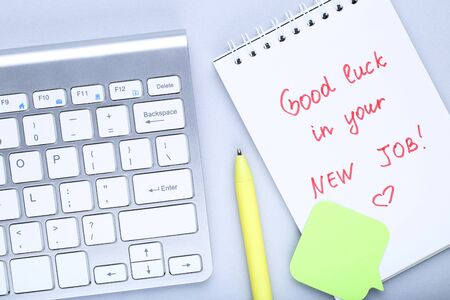 F9 F10 F11 F12 Delete
Backspace
O P
Enter
Good luck
in your
NEW JOB!